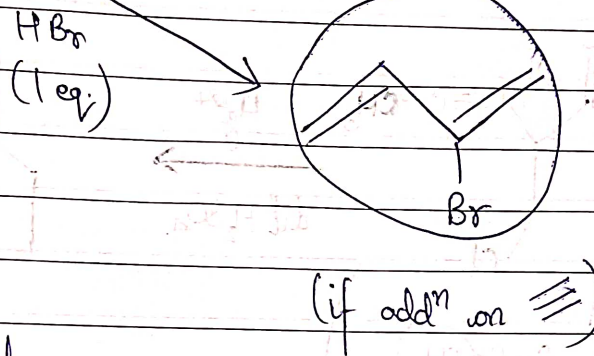 HBr
(1 eq.)
Br
(if addⁿ on ≡)